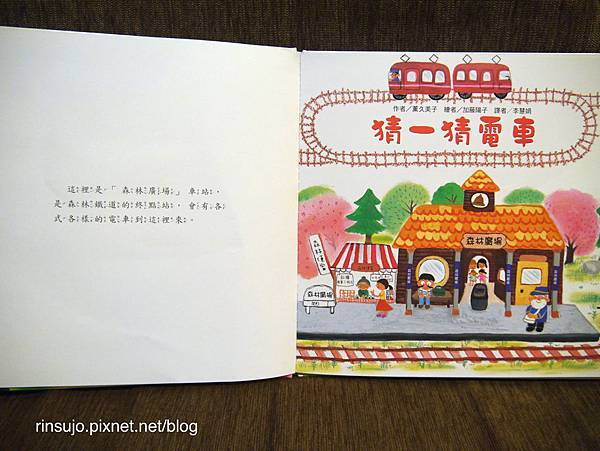 這裡是「森林廣場」車站，
是森林鐵道的終點站，會有各
式各樣的電車到這裡來。
作者／薰久美子 繪者／加藤陽子 譯者／李慧娟
猜一猜電車
森林廣場
森林廣場
rinsujo.pixnet.net/blog